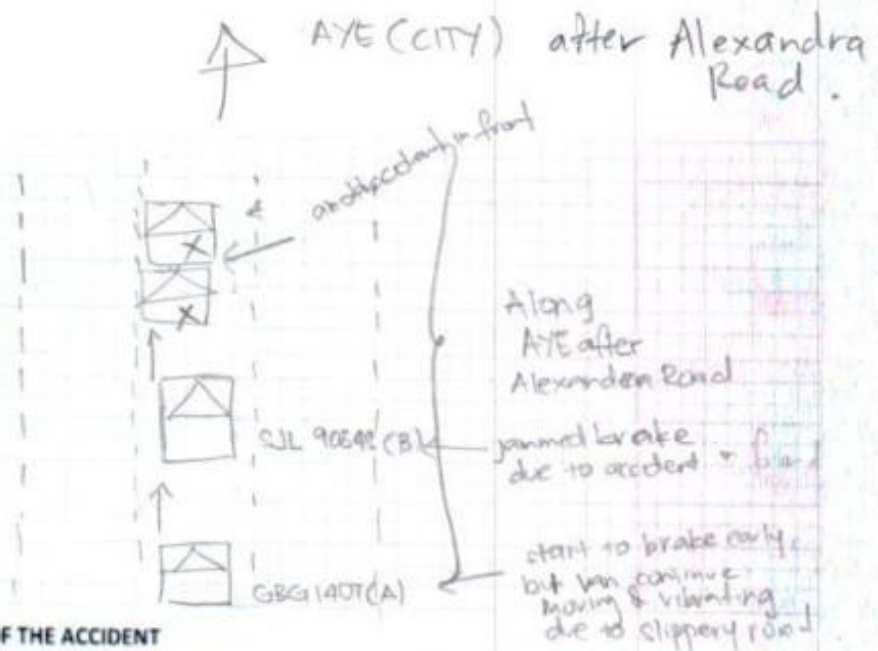 AYE (CITY) after Alexandra
Road.
another accident in front
Along
AYE after
Alexandra Road
SJL 9054S (B)
jammed brake
due to accident
start to brake early
but van continue
moving & vibrating
due to slippery road
GBG1407 (A)
F THE ACCIDENT